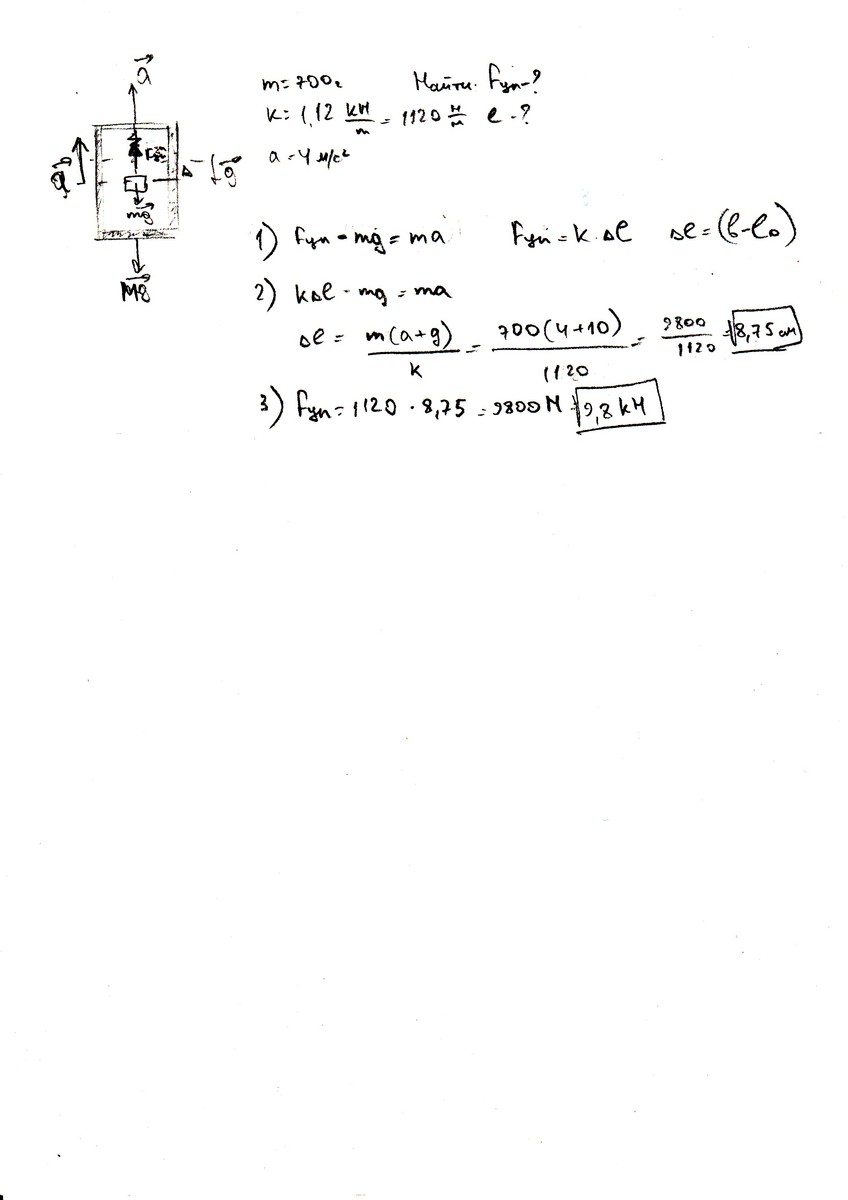 a
m = 700г Найти: Fуп - ?
k = 1,12 кН/м = 1120 Н/м l - ?
a = 4 м/с²
g
mg
Mg
1) Fуп - mg = ma Fуп = k · Δl Δl = (l - l₀)
2) kΔl - mg = ma
Δl = m(a+g)/k = 700(4+10)/1120 = 9800/1120 = 8,75 см
3) Fуп = 1120 · 8,75 = 9800 Н = 9,8 кН